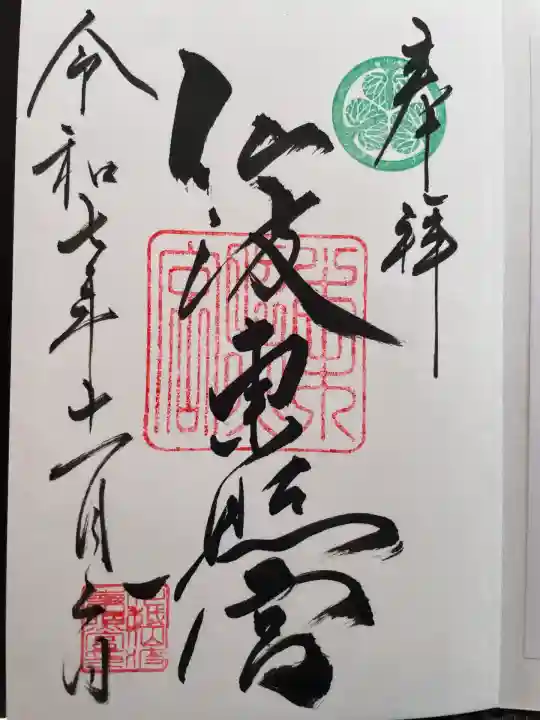 奉拝
仙波東照宮
令和七年十一月六日